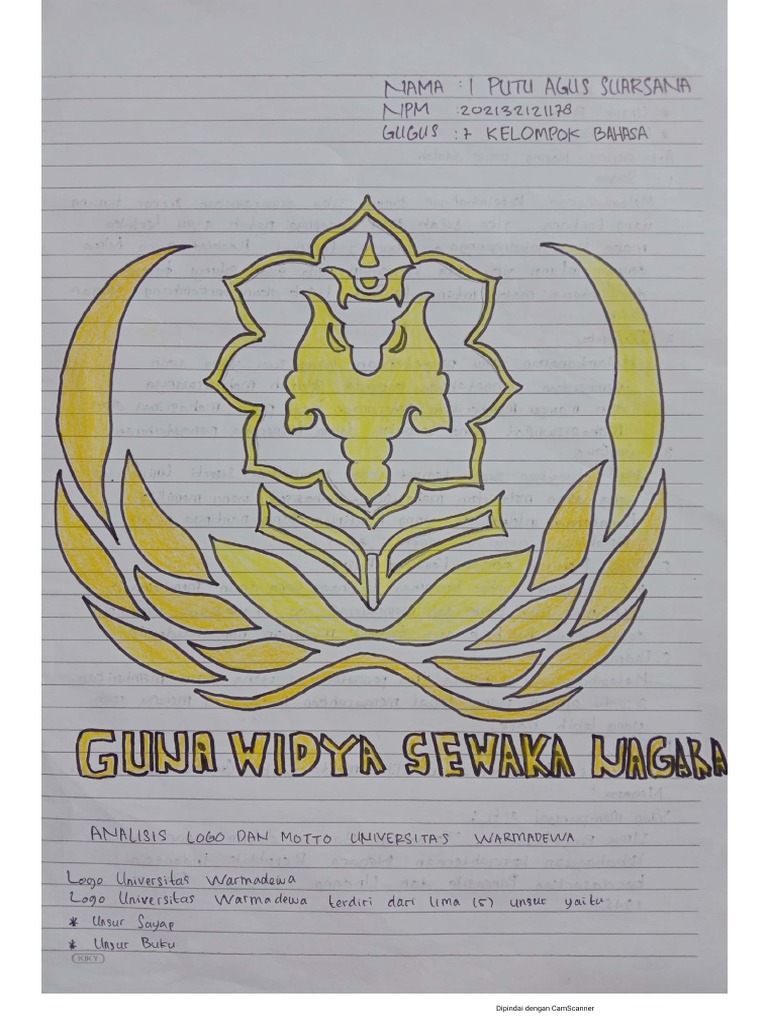 NAMA : I PUTU AGUS SUARSANA
NPM : 202132121178
GUGUS : 7 KELOMPOK BAHASA
GUNA WIDYA SEWAKA NAGARA
ANALISIS LOGO DAN MOTTO UNIVERSITAS WARMADEWA
Logo Universitas Warmadewa
Logo Universitas Warmadewa terdiri dari lima (5) unsur yaitu
* Unsur Sayap
* Unsur Buku
KIKY
Dipindai dengan CamScanner